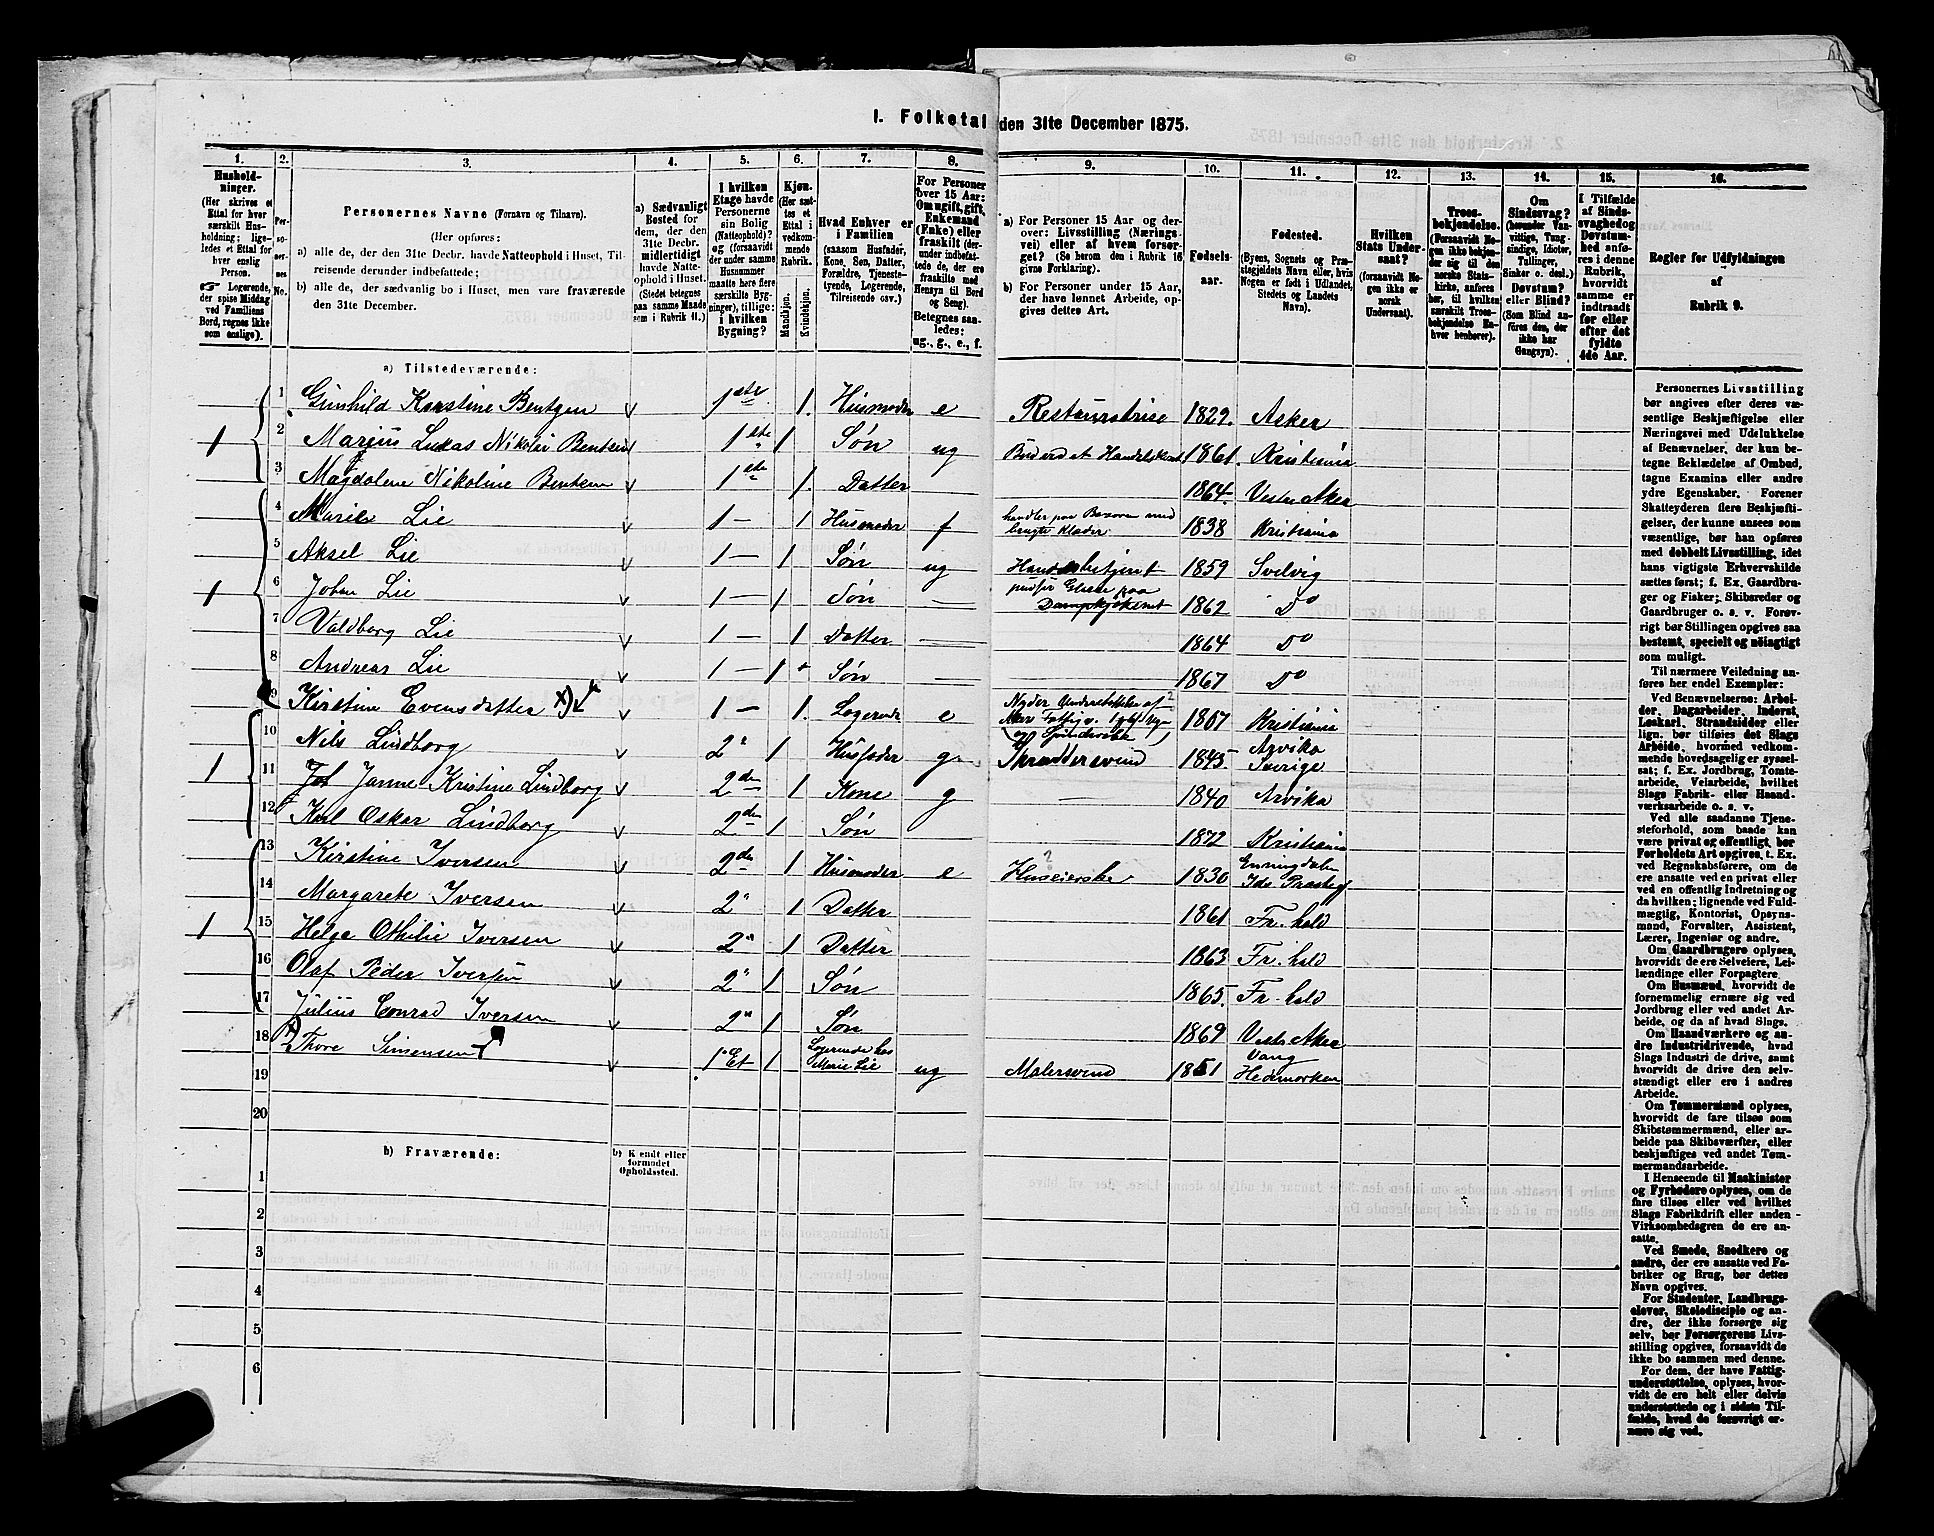 1. Folketal den 31te December 1875.
1. 2. 3. 4. 5. 6. 7. 8. 9. 10. 11. 12. 13. 14. 15. 16.
Hushold-
ninger.
(Her skrives et
Ettal for hver
særskilt Hus-
holdning; lige-
ledes et Ettal for
hver enslig
Person.
☞ Logerende,
der spise Middag
ved Familiens
Bord, regnes ikke
som enslige).
Per-
so-
ner-
nes
No.
Personernes Navne (Fornavn og Tilnavn).
(Her opføres:
a) alle de, der den 31te Decbr. havde Natteophold i Huset, Til-
reisende derunder indbefattede;
b) alle de, der sædvanlig bo i Huset, men vare fraværende
den 31te December.
a) Sædvanligt
Bosted for
dem, der den
31te Decbr.
midlertidigt
havde Natte-
ophold i Huset.
(Stedet betegnes
paa samme Maade
som i Rubrik 11.)
I hvilken
Etage havde
Personerne
sin Bolig
(Natteophold)?
og (forsaavidt
der under samme
Husnummer
maatte høre flere
særskilte Byg-
ninger), tillige:
i hvilken
Bygning?
Kjøn.
(Her sæt-
tes et
Ettal i
vedkom-
mende
Rubrik.
Mandkjøn.
Kvindekjøn.
Hvad Enhver er
i Familien
(saasom Husfader,
Kone, Søn, Datter,
Forældre, Tjeneste-
tyende, Logerende,
Tilreisende osv.)
For Personer
over 15 Aar:
Om ugift, gift,
Enkemand
(Enke) eller
fraskilt (der-
under indbefat-
tede de, der ere
fraskilte med
Hensyn til Bord
og Seng).
Betegnes saa-
ledes:
ug., g., e., f.
a) For Personer 15 Aar og der-
over: Livsstilling (Nærings-
vei) eller af hvem forsør-
get? (Se herom den i Rubrik 16
givne Forklaring).
b) For Personer under 15 Aar,
der have lønnet Arbeide, op-
gives dettes Art.
Fødsels-
aar.
Fødested.
(Byens, Sognets og Præ-
stegjeldets Navn eller, hvis
Nogen er født i Udlandet,
Stedets og Landets
Navn).
Hvilken
Stats Under-
saat?
(forsaavidt No-
gen ikke er
norsk
Undersaat).
Troes-
bekjendelse.
(Forsaavidt No-
gen ikke bekjen-
der sig til den
norske Stats-
kirke, anføres
her, til hvilken
særskilt Troes-
bekjendelse En-
hver henhører).
Om
Sindssvag?
(herunder Van-
vittige, Tung-
sindige, Idioter,
Tullinger,
Sinker o. desl.)
Døvstum?
eller Blind?
(Som Blind an-
føres den, der
ikke har
Gangsyn).
I Tilfælde
af Sinds-
svaghed og
Døvstum-
hed anfø-
res i denne
Rubrik,
hvorvidt
samme er
indtraadt
før eller
efter det
fyldte
4de Aar.
Regler for Udfyldningen
af
Rubrik 9.
a) Tilstedeværende:
1 Gunhild Karstine Bentzen v 1ste 1. Husmoder e Restauratrise 1829. Asker
1 2 Marius Lukas Nikolai Bentsen v 1ste 1 Søn ug Bud ved et Handelskont 1861. Kristiania
3 Magdolene Nikoline Bentsen v 1ste 1. Datter 1864. Vestre Aker
4 Marie Lie v 1 — 1 Husmoder f handler paa Bazaren med
brugte Klæder 1838 Kristiania
5 Aksel Lie v 1 — 1 Søn ug Handelsbetjent 1859 Svelvig
1 6 Johan Lie v 1 — 1 Søn — pudser Glasse paa
Dampkjøkenet 1862 Do
7 Valdborg Lie v 1 — 1 Datter — 1864 Do
8 Andreas Lie v 1 — 1 Søn — 1867 Do
9 Kirstine Evensdatter x) v 1 — 1. Logerende e Nyder Understøttelse af
Aker Fattigv.
og Spinderske 1807 Kristiania
10 Nils Lindborg v 2" 1 Husfader g Skræddersvend 1845 Arvika
Sverige
1 11 Janne Kristine Lindborg v 2den 1 Kone g — 1840 Arvika
12 Karl Oskar Lindborg v 2den 1 Søn 1872 Kristiania
13 Kirstine Iversen v 2den 1 Husmoder e Huseierske ? 1830 Enningdalen
Ide Præstegj
14 Margarete Iversen v 2" 1 Datter 1861 Fr. hald
1 15 Helga Othilie Iversen v 2" 1 Datter 1863 Fr. hald
16 Olaf Peder Iversen v 2" 1 Søn 1865. Fr. hald
17 Julius Conrad Iversen v 2" 1 Søn 1869 Vestre Aker
18 x) Thore Simensen v 1 Et 1 Logerende hos
Marie Lie ug Malersvend 1851 Vang
Hedemarken
19
20
b) Fraværende:
b) Kjendt eller
formodet
Opholdssted.
1
2
3
4
5
6
Personernes Livsstilling
bør angives efter deres væ-
sentlige Beskjæftigelse eller
Næringsvei med Udelukkelse
af Benævnelser, der kun be-
tegne Beklædelse af Ombud,
tagne Examina eller andre
ydre Egenskaber. Forener
Skatteyderen flere Beskjæfti-
gelser, der kunne ansees som
væsentlige, bør han opføres
med dobbelt Livsstilling, idet
hans vigtigste Erhvervskilde
sættes først; f. Ex. Gaardbru-
ger og Fisker; Skibsreder og
Gaardbruger o. s. v. Forøv-
rigt bør Stillingen opgives saa
bestemt, specielt og nøiagtigt
som muligt.
Til nærmere Veiledning an-
føres her endel Exempler:
Ved Benævnelserne: Arbei-
der, Dagarbeider, Inderst,
Løskarl, Strandsidder eller
lign. bør tilføies det Slags
Arbeide, hvormed vedkom-
mende hovedsagelig er syssel-
sat; f. Ex. Jordbrug, Tomte-
arbeide, Veiarbeide, hvilket
Slags Fabrik- eller Haand-
værksarbeide o. s. v.
Ved alle saadanne Tjene-
steforhold, som baade kan
være privat og offentligt, bør
Forholdets Art opgives, t. Ex.
ved Regnskabsførere, om de
ere ansatte ved en privat eller
ved en offentlig Indretning og
da hvilken; lignende ved Fuld-
mægtig, Kontorist, Opsyns-
mand, Forvalter, Assistent,
Lærer, Ingeniør og andre.
Om Gaardbrugere oplyses,
hvorvidt de ere Selveiere, Lei-
lændinge eller Forpagtere.
Om Husmænd, hvorvidt de
fornemmelig ernære sig ved
Jordbrug eller ved andet Ar-
beide, og da af hvad Slags.
Om Haandværkere og an-
dre Industridrivende, hvad
Slags Industri de drive, samt
hvorvidt de drive den selv-
stændigt eller ere i andres
Arbeide.
Om Tømmermænd oplyses,
hvorvidt de fare tilsøs som
Skibstømmermænd, eller ar-
beide paa Skibsværfter, eller
beskjæftiges ved andet Tøm-
mermandsarbeide.
I Henseende til Maskinister
og Fyrbødere oplyses, om de
fare tilsøs eller ved hvilket
Slags Fabrikdrift eller anden
Virksomhedsgren de ere an-
satte.
Ved Smede, Snedkere og
andre, der ere ansatte ved Fa-
briker og Brug, bør dettes
Navn opgives.
For Studenter, Landbrugs-
elever, Skoledisciple og an-
dre, der ikke forsørge sig
selv, bør Forsørgerens Livs-
stilling opgives, forsaavidt de
ikke bo sammen med denne.
For dem, der have Fattig-
understøttelse, oplyses, hvor-
vidt de ere helt eller delvis
understøttede og i sidste Til-
fælde, hvad de forøvrigt er-
nære sig ved.